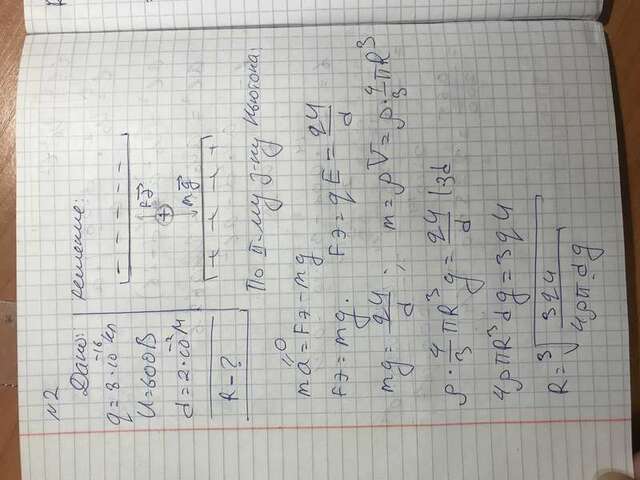 №2
Дано:
q=8·10⁻¹⁶ кл
U=600В
d=2·10⁻²м
R-?
Решение:
- - - - - -
Fэ
+
mg
+ + + + +
По II-му з-ну Ньютона:
ma=Fэ-mg
0
Fэ=mg.
Fэ=qE=qU/d
mg=qU/d;
m=ρV=ρ·4/3πR³
ρ·4/3πR³g=qU/d |3d
4ρπR³dg=3qU
R=³√(3qU/4ρπ·dg)